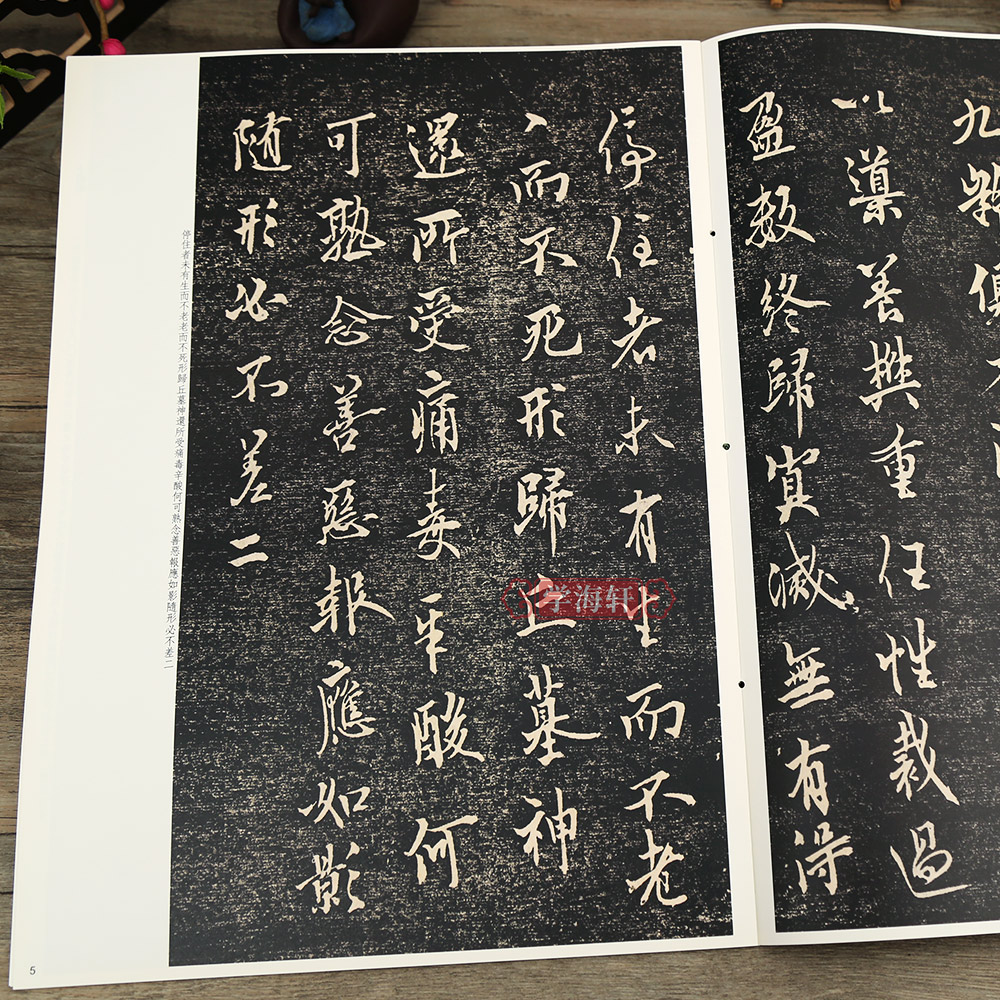 九
以導善重任性裁過
盈数終歸寘滅無有得
停住者未有生而不老
〻而不死形歸丘墓神
還所受痛毒辛酸何
可熟念善惡報應如影
随形必不差二
停住者未有生而不老老而不死形歸丘墓神還所受痛毒辛酸何可熟念善惡報應如影隨形必不差二
学海轩
5